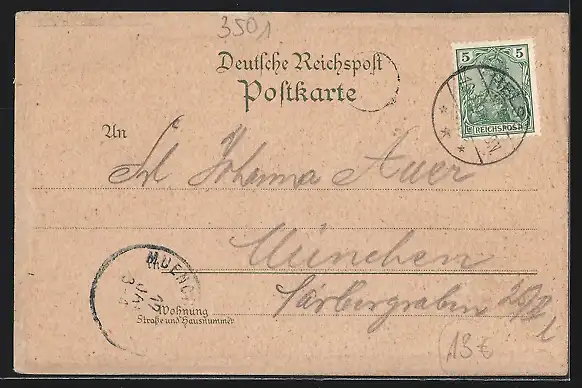 3501
Deutsche Reichspost
Postkarte
5 5
REICHSPOST
An
Frl Johanna Auer
München
MUENCH
Färbergraben
Wohnung
Straße und Hausnummer
13€